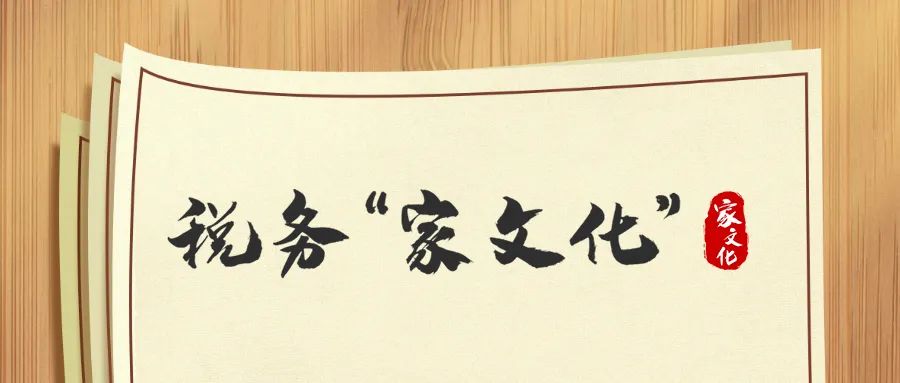 税务“家文化”
家文化